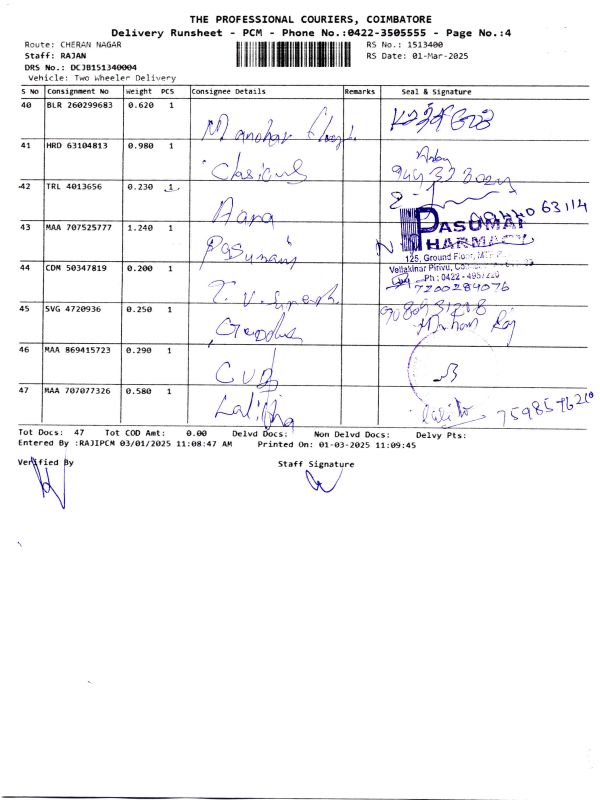 THE PROFESSIONAL COURIERS, COIMBATORE
Delivery Runsheet - PCM - Phone No.:0422-3505555 - Page No.:4
Route: CHERAN NAGAR RS No.: 1513400
Staff: RAJAN RS Date: 01-Mar-2025
DRS No.: DCJB151340004
Vehicle: Two Wheeler Delivery
S No Consignment No Weight PCS Consignee Details Remarks Seal & Signature
40 BLR 260299683 0.620 1 Manohar
41 HRD 63104813 0.980 1 Clasicus
42 TRL 4013656 0.230 1 Aara 63114
43 MAA 707525777 1.240 1 Pasumai PASUMAI PHARMACY
125, Ground Floor,
Vellakinar Pirivu,
Ph : 0422 - 4957220
44 CDM 50347819 0.200 1 T.V. Suresh 7200284076
45 SVG 4720936 0.250 1 Geodus
46 MAA 869415723 0.290 1 CUB
47 MAA 707077326 0.580 1 Lalitha
Tot Docs: 47 Tot COD Amt: 0.00 Delvd Docs: Non Delvd Docs: Delvy Pts:
Entered By :RAJIPCM 03/01/2025 11:08:47 AM Printed On: 01-03-2025 11:09:45
Verified By Staff Signature